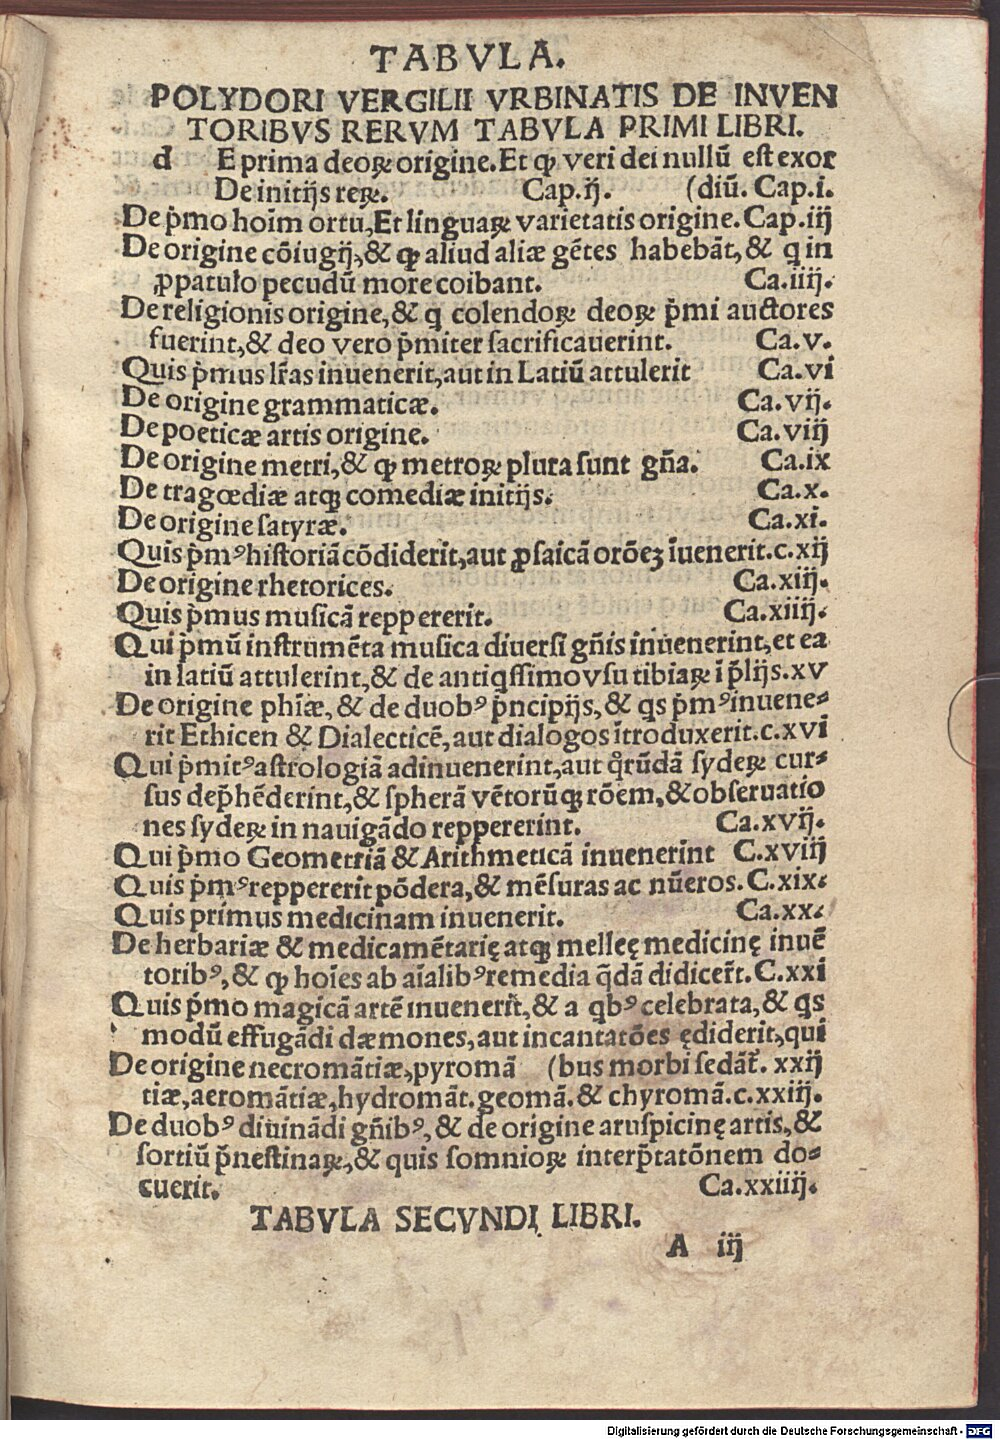 TABVLA.
POLYDORI VERGILII VRBINATIS DE INVEN
TORIBVS RERVM TABVLA PRIMI LIBRI.
d E prima deoꝝ origine. Et ꝙ veri dei nullũ est exor
De initijs reꝝ. Cap.ij. (diũ. Cap.i.
De p̃mo hoim̃ ortu, Et linguaꝝ varietatis origine. Cap.iij
De origine cõiugij, & ꝙ aliud aliæ gẽtes habebãt, & q in
ꝓpatulo pecudũ more coibant. Ca.iiij.
De religionis origine, & q colendoꝝ deoꝝ p̃mi auctores
fuerint, & deo vero p̃miter sacrificauerint. Ca.v.
Quis p̃mus lr̃as inuenerit, aut in Latiũ attulerit Ca.vi
De origine grammaticæ. Ca.vij.
De poeticæ artis origine. Ca.viij
De origine metri, & ꝙ metroꝝ plura sunt gña. Ca.ix
De tragœdiæ atqꝫ comediæ initijs. Ca.x.
De origine satyræ. Ca.xi.
Quis p̃mꝰ historiã cõdiderit, aut ꝓsaicã orõeꝫ iuenerit.c.xij
De origine rhetorices. Ca.xiij.
Quis p̃mus musicã reppererit. Ca.xiiij.
Qui p̃mũ instrumẽta musica diuersi gñis inuenerint, et ea
in latiũ attulerint, & de antiqssimo vsu tibiaꝝ ĩ p̃lijs.xv
De origine phĩæ, & de duobꝰ p̃ncipijs, & qs p̃mꝰ inuene-
rit Ethicen & Dialecticẽ, aut dialogos ĩtroduxerit.c.xvi
Qui p̃mitꝰ astrologiã adinuenerint, aut q̃rũdã syderꝝ cur-
sus dep̃hẽderint, & spherã vẽtorũqꝫ rõem, & obseruatio
nes syderꝝ in nauigãdo reppererint. Ca.xvij.
Qui p̃mo Geometriã & Arithmeticã inuenerint C.xviij
Quis p̃mꝰ reppererit põdera, & mẽsuras ac nũeros. C.xix.
Quis primus medicinam inuenerit. Ca.xx.
De herbariæ & medicamẽtarię atqꝫ melleę medicinę inuẽ
toribꝰ, & ꝙ hoĩes ab aĩalibꝰ remedia q̃dã didicer̃t. C.xxi
Quis p̃mo magicã artẽ inuenerĩt, & a qbꝰ celebrata, & qs
modũ effugãdi dæmones, aut incantatões ędiderit, qui
De origine necromãtiæ, pyromã (bus morbi sedãt̃. xxij
tiæ, aeromãtiæ, hydromãt. geomã. & chyromã.c.xxiij.
De duobꝰ diuinãdi gñibꝰ, & de origine aruspicinę artis, &
sortiũ p̃nestinaꝝ, & quis somnioꝝ interp̃tatõnem do-
cuerit. Ca.xxiiij.
TABVLA SECVNDI LIBRI.
A iij
Digitalisierung gefördert durch die Deutsche Forschungsgemeinschaft - DFG